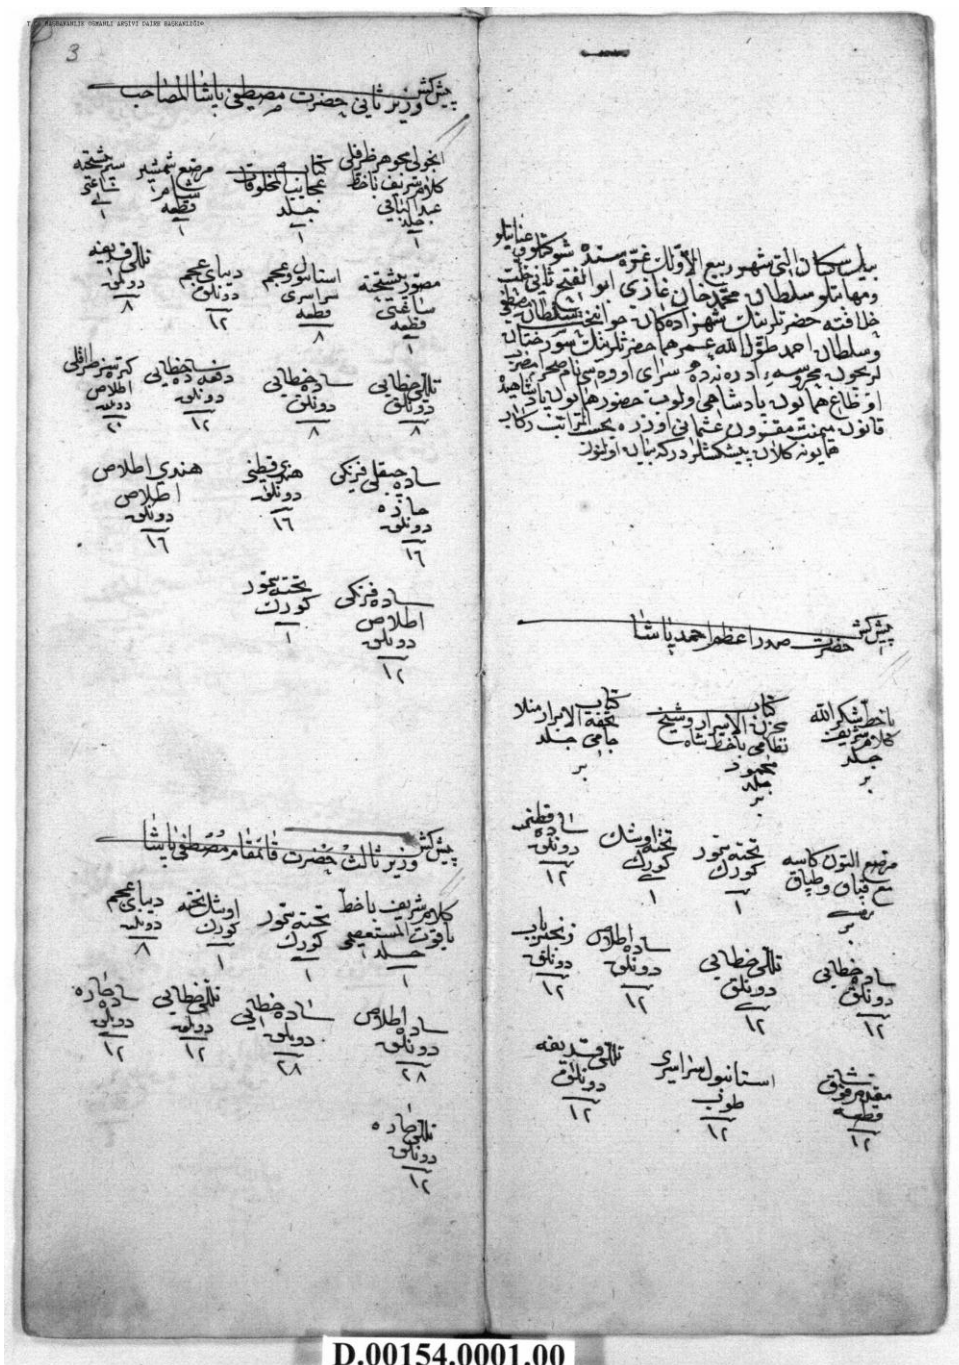 بيك سكسان التى شهر ربيع الأولك غره سنده شوكتلو عنايتلو
ومهابتلو سلطان محمد خان غازى ابو الفتح ثانى خلدت
خلافته حضرتلرينك شهزاده كان جوانبخت سلطان مصطفى
وسلطان احمد طول الله عمرهما حضرتلرينك سور ختان
لريچون محروسهٔ ادرنه ده سراى اوره سى نام صحراء
اوتاغ همايون پادشاهى اولوب حضور همايون پادشاهيده
قانون ميمنت مقرون عثمانى اوزره بحسب المراتب ركاب
همايونه كلان پيشكشلردر كه بيان اولنور
پيشكش
حضرت صدر اعظم احمد پاشا
باخط شكر الله
كلام شريف
جلد
بر
كتاب
مخزن الاسرار شيخ
نظامى باخط شاه
محمود
جلد
بر
كتاب
تحفة الابرار منلا
جامى جلد
بر
مرصع التون كاسه
مع قپاق وطباق
بر
تخته سمور
كورك
١
تخته اوشك
كورك
١
ساده قطنى
دونلق
١٢
ساده خطايى
دونلق
١٢
تللى خطايى
دونلق
١٢
ساده اطلاس
دونلق
١٢
زنجيرباب
دونلق
١٢
قطعه
١٢
استانبول سراسرى
طوب
١٢
تللى قديفه
دونلق
١٢
3
پيشكش
وزير ثانى حضرت مصطفى پاشا المصاحب
انجولى مجوهر ظرفلى
كلام شريف باخط
جلد
١
كتاب
عجايب المخلوقات
جلد
١
مرصع شمشير
قطعه
١
سر پيشتخته
ساعتى
١
مصور پيشتخته
ساعتى
قطعه
١
استانبول وعجم
سراسرى
قطعه
٨
ديباى عجم
دونلق
١٢
تللى قديفه
دونلق
٨
تللى خطايى
دونلق
٨
ساده خطايى
دونلق
٨
خطايى
دونلق
١٢
اطلاس
دونلق
٢٠
ساده فرنكى
خاره
دونلق
١٦
هندى قطنى
دونلق
١٦
هندى اطلاص
اطلاص
دونلق
١٦
ساده فرنكى
اطلاص
دونلق
١٢
تخته سمور
كورك
١
پيشكش
وزير ثالث حضرت قائمقام مصطفى پاشا
كلام شريف باخط
ياقوت المستعصمى
جلد
١
تخته سمور
كورك
١
اوشك تخته
كورك
١
ديباى عجم
دونلق
٨
ساده اطلاص
دونلق
٢٨
ساده خطايى
دونلق
٢٨
تللى خطايى
دونلق
١٢
ساده خاره
دونلق
١٢
تللى خاره
دونلق
١٢
D.00154.0001.00